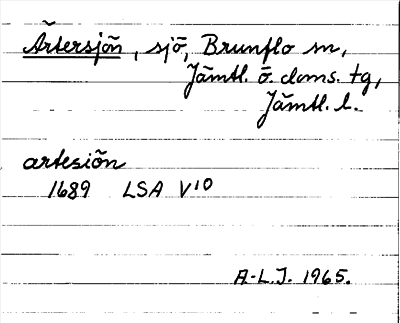 Ärtersjön, sjö, Brunflo sn,
Jämtl. ö. doms. tg,
Jämtl. l.
artesiön
1689 LSA V10
A-L.J. 1965.